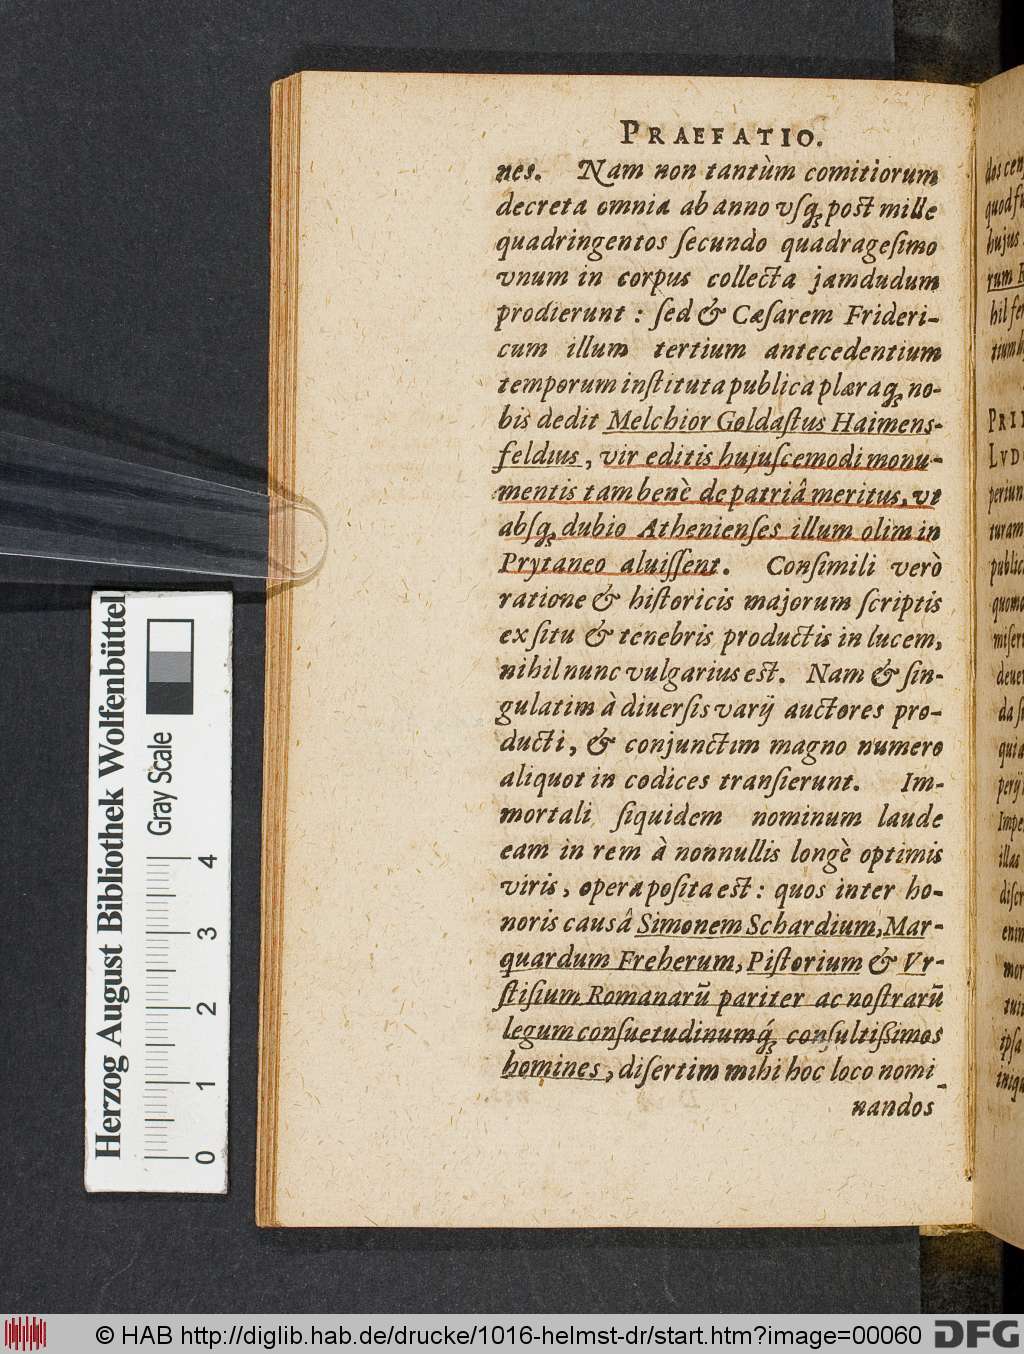 PRAEFATIO.
nes. Nam non tantùm comitiorum
decreta omnia ab anno vſq́; poſt mille
quadringentos ſecundo quadrageſimo
vnum in corpus collecta jamdudum
prodierunt : ſed & Cæſarem Frideri-
cum illum tertium antecedentium
temporum inſtituta publica plæraq; no-
bis dedit Melchior Goldaſtus Haimens-
feldius, vir editis hujuſcemodi monu-
mentis tam benè de patriâ meritus, vt
abſq; dubio Athenienſes illum olim in
Prytaneo aluiſſent. Conſimili verò
ratione & hiſtoricis majorum ſcriptis
ex ſitu & tenebris productis in lucem,
nihil nunc vulgarius est. Nam & ſin-
gulatim à diuerſis varij auctores pro-
ducti, & conjunctim magno numero
aliquot in codices tranſierunt. Im-
mortali ſiquidem nominum laude
eam in rem à nonnullis longè optimis
viris, opera poſita est : quos inter ho-
noris causâ Simonem Schardium, Mar-
quardum Freherum, Piſtorium & Vr-
ſtiſium Romanarũ pariter ac noſtrarũ
legum conſuetudinumq́; conſultißimos
homines, diſertim mihi hoc loco nomi-
nandos
dos cen
quod fu
hujus
rum
hil fer
PRI
LVD
periun
turam
public
quoma
miſer
deue
da
qui
perij
Impe
illas
diſer
enim
mor
tuit
ipſa
iniqu
Herzog August Bibliothek Wolfenbüttel
Gray Scale
0 1 2 3 4
© HAB http://diglib.hab.de/drucke/1016-helmst-dr/start.htm?image=00060
DFG